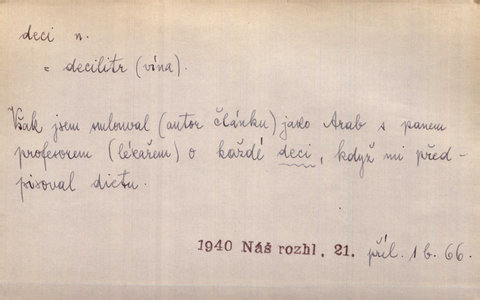 deci n.
= decilitr (vína).
Však jsem smlouval (autor článku) jako Arab s panem
profesorem (lékařem) o každé deci, když mi před-
pisoval dietu.
1940 Náš rozhl. 21. příl. 1 b. 66.